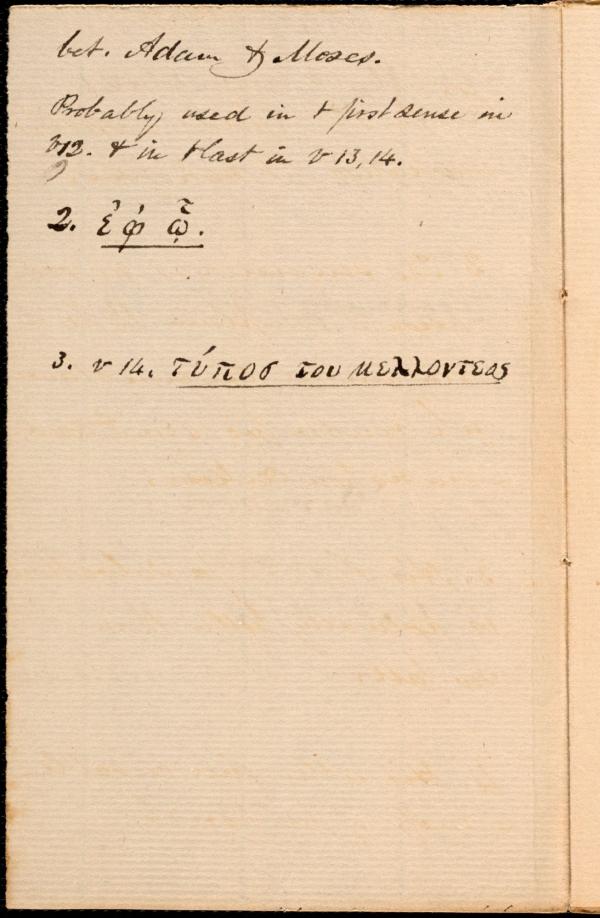 bet. Adam & Moses.
Probably used in t first sense in
v12. & in t last in v 13, 14.
2. ἐφ' ᾧ.
3. v 14. τύποσ του μελλοντεας